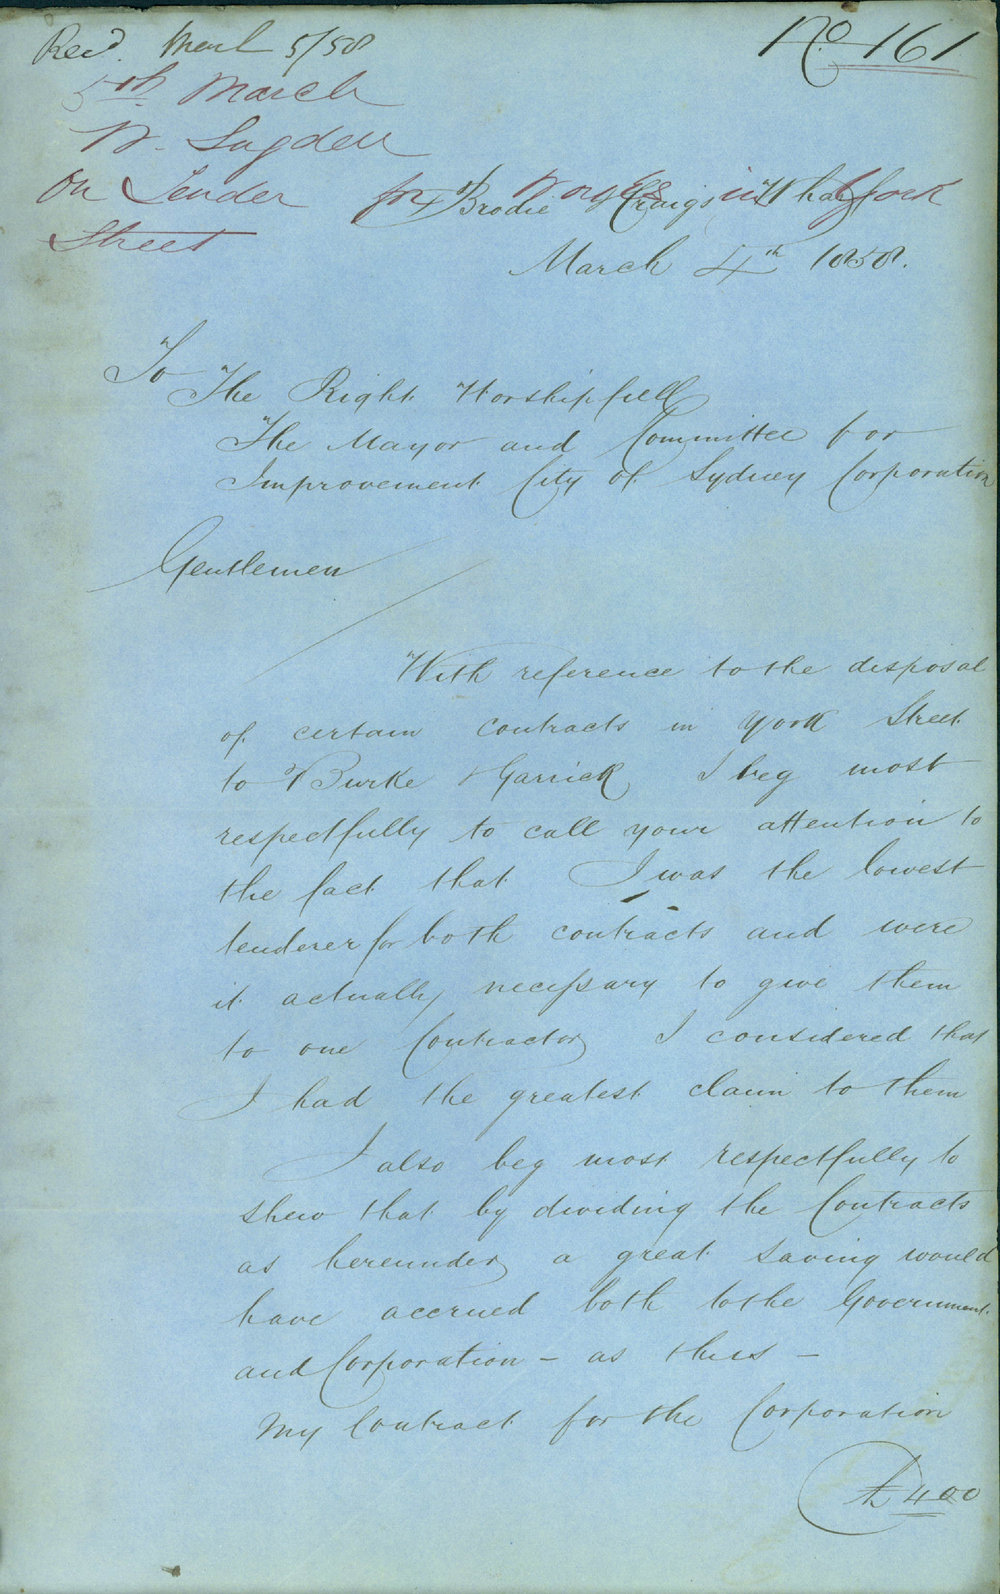 Recd. March 5/58
No 161
5th March
W. Sugden
on Tender for Works in York
Street
Brodie & Craigs Wharf
March 4th 1858.
To
The Right Worshipfull
The Mayor and Committee for
Improvement City of Sydney Corporation
Gentlemen
With reference to the disposal
of certain contracts in York Street
to Burke & Garrick I beg most
respectfully to call your attention to
the fact that I was the lowest
tenderer for both contracts and were
it actually necessary to give them
to one Contractor I considered that
I had the greatest claim to them
I also beg most respectfully to
shew that by dividing the Contracts
as hereunder a great saving would
have accrued both to the Government
and Corporation – as thus –
My Contract for the Corporation
£400